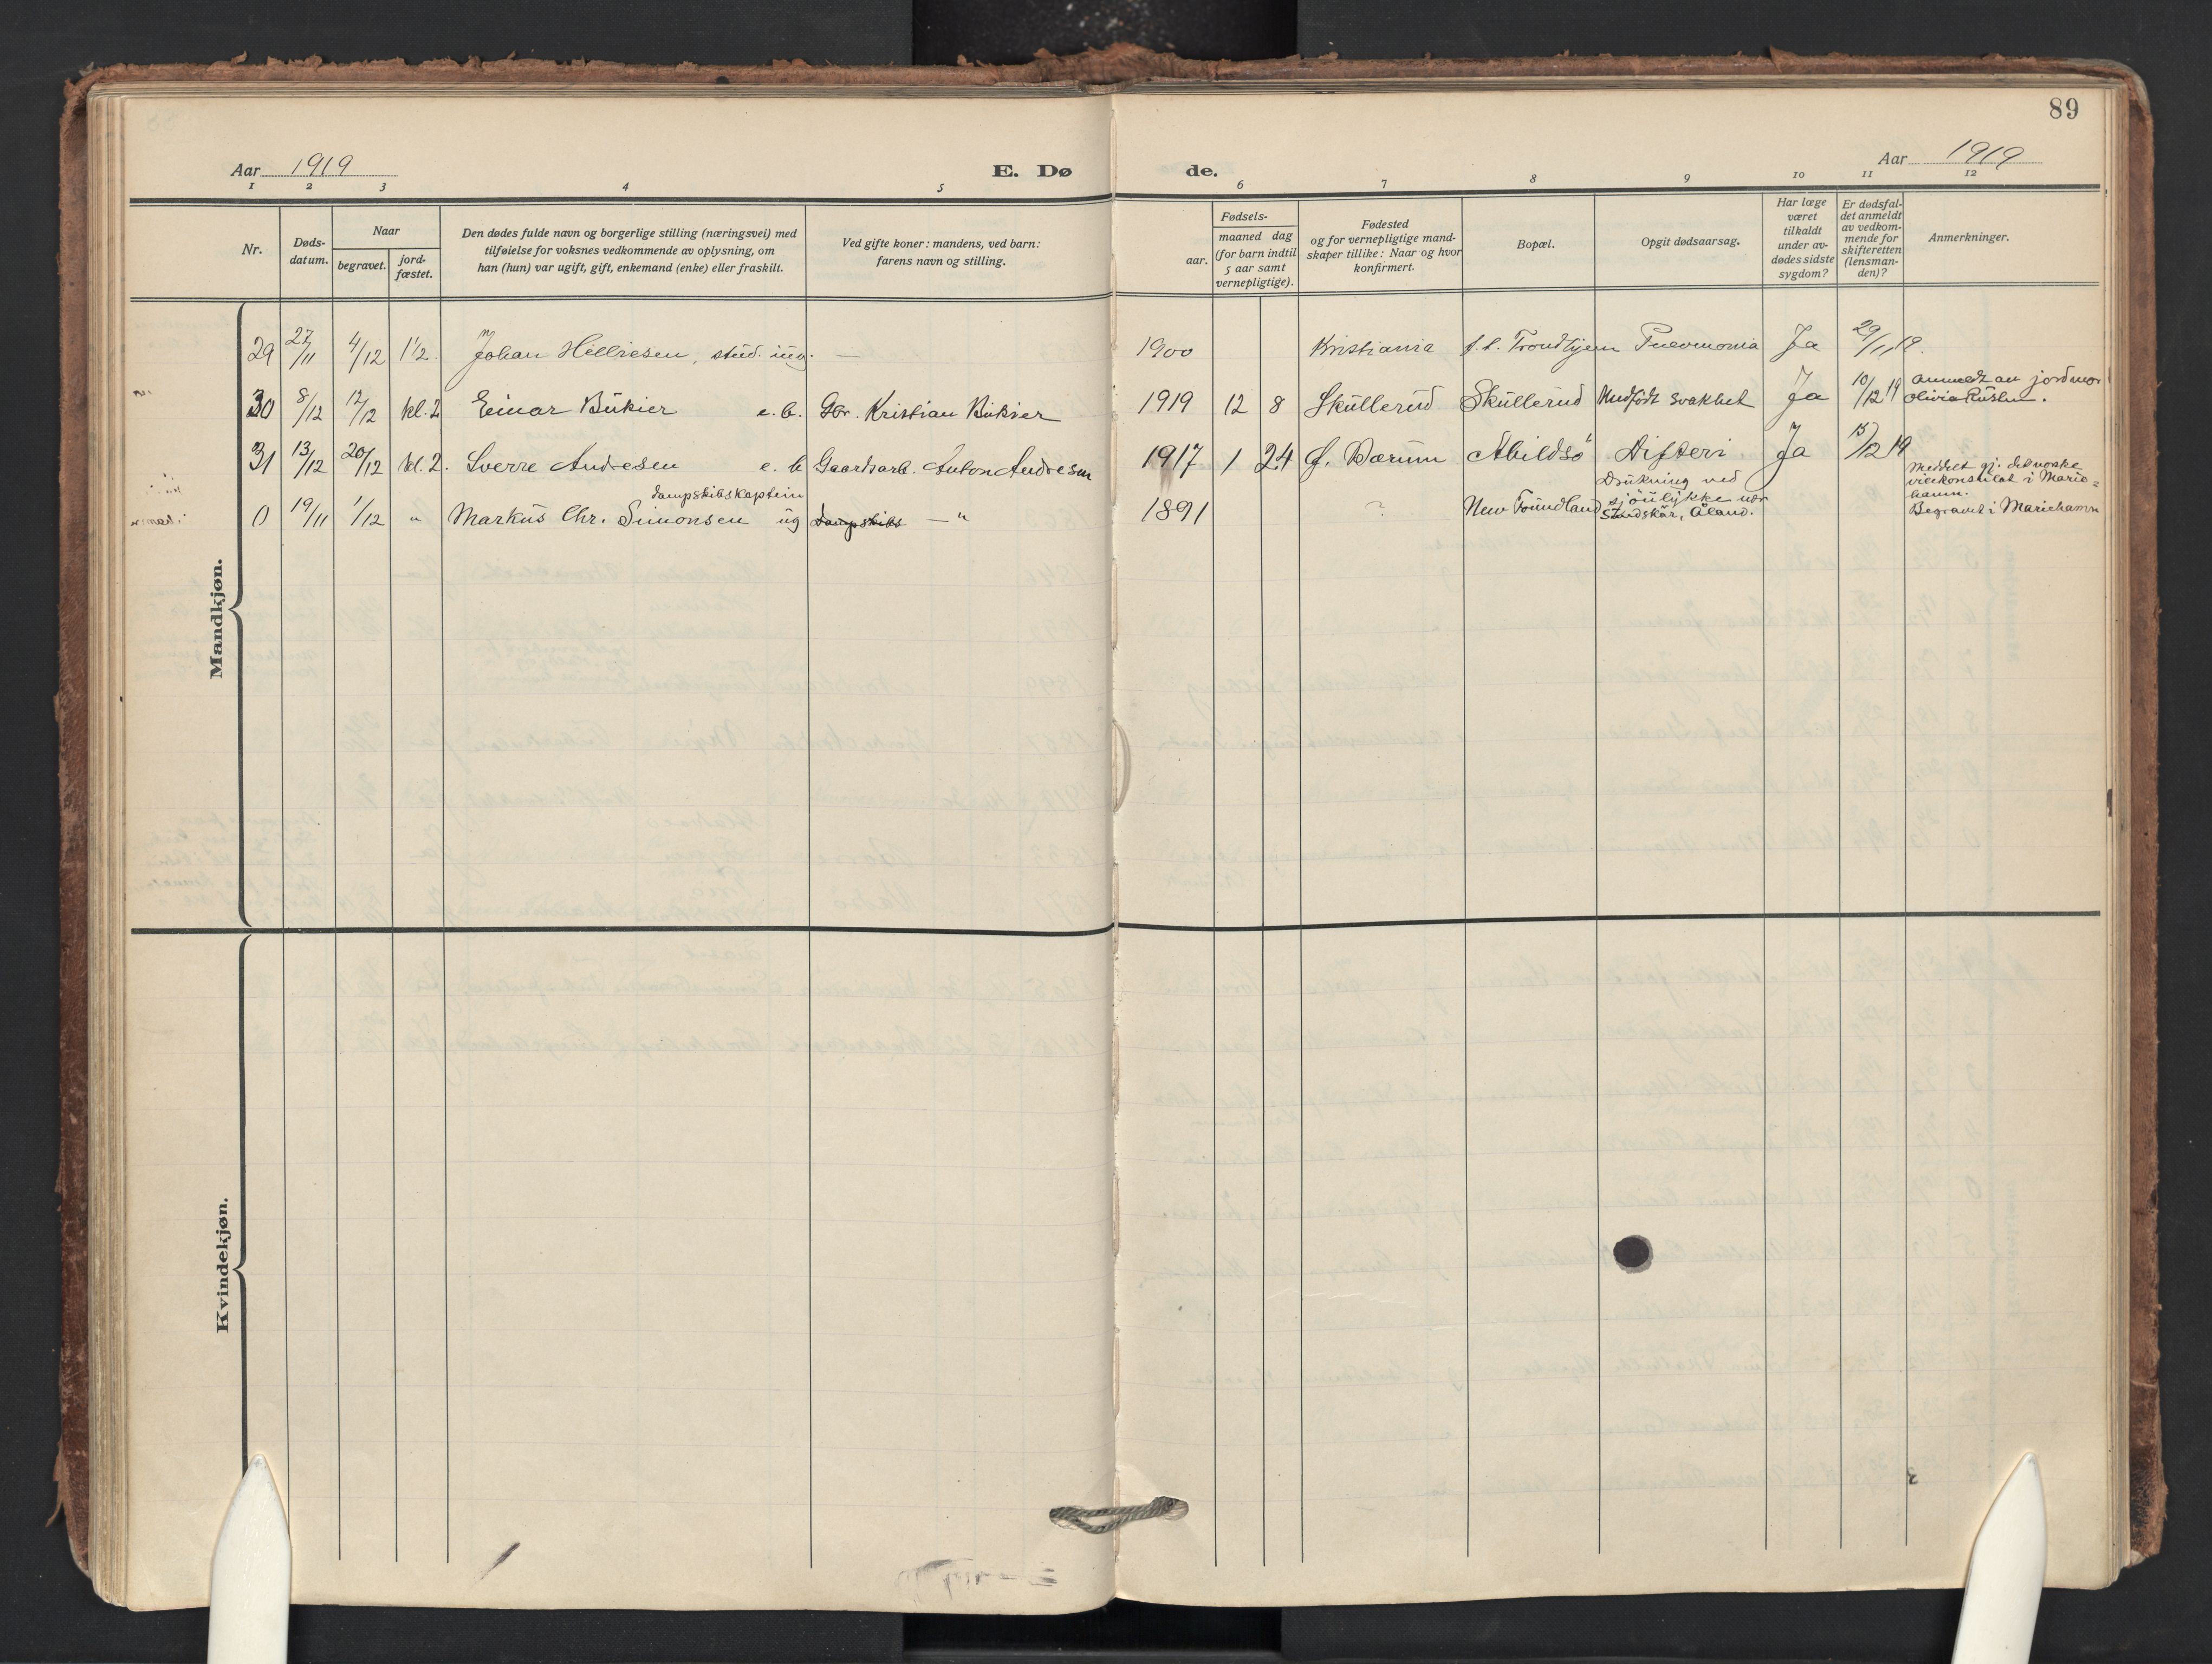 89
Aar 1919
E. Dø
de.
Aar 1919
1 2 3 4 5 6 7 8 9 10 11 12
Nr.
Døds-
datum.
Naar
begravet.
jord-
fæstet.
Den dødes fulde navn og borgerlige stilling (næringsvei) med
tilføielse for voksnes vedkommende av oplysning, om
han (hun) var ugift, gift, enkemand (enke) eller fraskilt.
Ved gifte koner: mandens, ved barn:
farens navn og stilling.
Fødsels-
aar.
maaned dag
(for barn indtil
5 aar samt
vernepligtige).
Fødested
og for vernepligtige mand-
skaper tillike: Naar og hvor
konfirmert.
Bopæl.
Opgit dødsaarsag.
Har læge
været
tilkaldt
under av-
dødes sidste
sygdom?
Er dødsfal-
det anmeldt
av vedkom-
mende for
skifteretten
(lensman-
den)?
Anmerkninger.
Mandkjøn.
29 27/11 4/12 1 1/2. Johan Hilliesen, stud. ing. — 1900 Kristiania f. t. Trondhjem Pneumonia Ja 29/11 19.
30 8/12 12/12 kl. 2 Einar Bükier e. b. Gbr. Kristian Bükier 1919 12 8 Skullerud Skullerud Medfødt svakhet Ja 10/12 19 anmeldt av jordmor
Olivia
31 13/12 20/12 kl. 2. Sverre Andresen e. b Gaardsarb. Anton Andresen 1917 1 24 Ø. Bærum Abildsö Difteri Ja 15/12 19
0 19/11 1/12 " Markus Chr. Simonsen dampskibskaptein ug Dampskibs — " 1891 ? New Foundland Drukning ved
sjöulykke nær
Åland.
Meddelt gj. det norske
visekonsulat i Marie-
hamn.
Begravet i Mariehamn
Kvindekjøn.